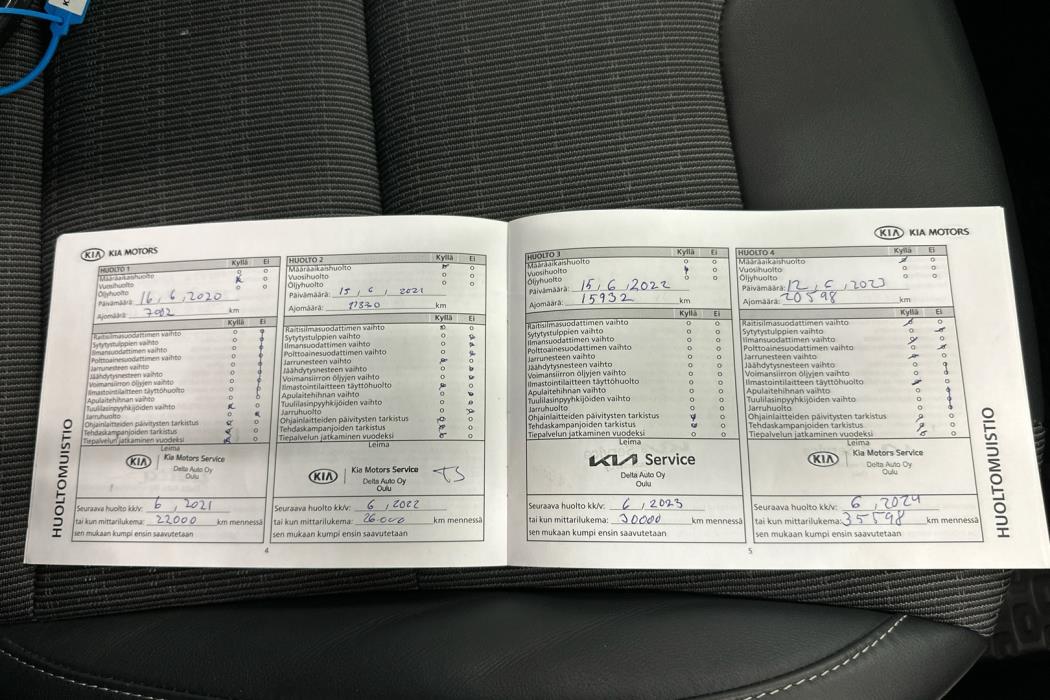 KIA KIA MOTORS
HUOLTO 1 Kyllä Ei
Määräaikaishuolto
Vuosihuolto
Öljyhuolto
Päivämäärä: 16, 6, 2020
Ajomäärä: km
Kyllä Ei
Raitisilmasuodattimen vaihto
Sytytystulppien vaihto
Ilmansuodattimen vaihto
Polttoainesuodattimen vaihto
Jarrunesteen vaihto
Jäähdytysnesteen vaihto
Voimansiirron öljyjen vaihto
Ilmastointilaitteen täyttöhuolto
Apulaitehihnan vaihto
Tuulilasinpyyhkijöiden vaihto
Jarruhuolto
Ohjainlaitteiden päivitysten tarkistus
Tehdaskampanjoiden tarkistus
Tiepalvelun jatkaminen vuodeksi
Leima
KIA Kia Motors Service
Delta Auto Oy
Oulu
Seuraava huolto kk/v: 6, 2021
tai kun mittarilukema: 22000 km mennessä
sen mukaan kumpi ensin saavutetaan
4
HUOLTOMUISTIO
HUOLTO 2 Kyllä Ei
Määräaikaishuolto
Vuosihuolto
Öljyhuolto
Päivämäärä: 15, 6, 2021
Ajomäärä: km
Kyllä Ei
Raitisilmasuodattimen vaihto
Sytytystulppien vaihto
Ilmansuodattimen vaihto
Polttoainesuodattimen vaihto
Jarrunesteen vaihto
Jäähdytysnesteen vaihto
Voimansiirron öljyjen vaihto
Ilmastointilaitteen täyttöhuolto
Apulaitehihnan vaihto
Tuulilasinpyyhkijöiden vaihto
Jarruhuolto
Ohjainlaitteiden päivitysten tarkistus
Tehdaskampanjoiden tarkistus
Tiepalvelun jatkaminen vuodeksi
Leima
KIA Kia Motors Service
Delta Auto Oy
Oulu
Seuraava huolto kk/v: 6, 2022
tai kun mittarilukema: 26000 km mennessä
sen mukaan kumpi ensin saavutetaan
HUOLTO 3 Kyllä Ei
Määräaikaishuolto
Vuosihuolto
Öljyhuolto
Päivämäärä: 15, 6, 2022
Ajomäärä: 15932 km
Kyllä Ei
Raitisilmasuodattimen vaihto
Sytytystulppien vaihto
Ilmansuodattimen vaihto
Polttoainesuodattimen vaihto
Jarrunesteen vaihto
Jäähdytysnesteen vaihto
Voimansiirron öljyjen vaihto
Ilmastointilaitteen täyttöhuolto
Apulaitehihnan vaihto
Tuulilasinpyyhkijöiden vaihto
Jarruhuolto
Ohjainlaitteiden päivitysten tarkistus
Tehdaskampanjoiden tarkistus
Tiepalvelun jatkaminen vuodeksi
Leima
KIA Service
Delta Auto Oy
Oulu
Seuraava huolto kk/v: 6, 2023
tai kun mittarilukema: 30000 km mennessä
sen mukaan kumpi ensin saavutetaan
KIA KIA MOTORS
HUOLTO 4 Kyllä Ei
Määräaikaishuolto
Vuosihuolto
Öljyhuolto
Päivämäärä: 12, 6, 2023
Ajomäärä: 20598 km
Kyllä Ei
Raitisilmasuodattimen vaihto
Sytytystulppien vaihto
Ilmansuodattimen vaihto
Polttoainesuodattimen vaihto
Jarrunesteen vaihto
Jäähdytysnesteen vaihto
Voimansiirron öljyjen vaihto
Ilmastointilaitteen täyttöhuolto
Apulaitehihnan vaihto
Tuulilasinpyyhkijöiden vaihto
Jarruhuolto
Ohjainlaitteiden päivitysten tarkistus
Tehdaskampanjoiden tarkistus
Tiepalvelun jatkaminen vuodeksi
Leima
KIA Kia Motors Service
Delta Auto Oy
Oulu
Seuraava huolto kk/v: 6, 2024
tai kun mittarilukema: 35598 km mennessä
sen mukaan kumpi ensin saavutetaan
5
HUOLTOMUISTIO